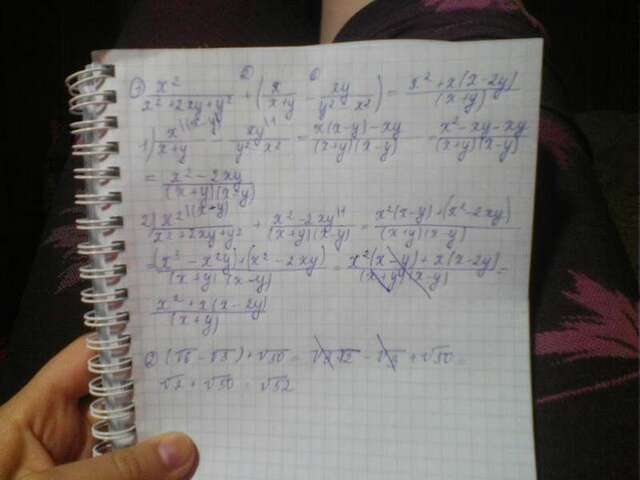 ① x²/(x²+2xy+y²) + (x/(x+y) - xy/(y² x²)) = (x²+x(x-2y))/(x+y)
1) x/(x+y) - xy/(y² x²) = (x(x-y)-xy)/((x+y)(x-y)) = (x²-xy-xy)/((x+y)(x-y))
= (x²-2xy)/((x+y)(x-y))
2) x²/(x²+2xy+y²) + (x²-2xy)/((x+y)(x-y)) = (x²(x-y)+(x²-2xy))/((x+y)(x-y))
= ((x³-x²y)+(x²-2xy))/((x+y)(x-y)) = (x²(x-y)+x(x-2y))/((x+y)(x-y)) =
(x²+x(x-2y))/(x+y)
② (√6-√3)+√50 = √3√2-√3+√50 =
√2+√50 = √52